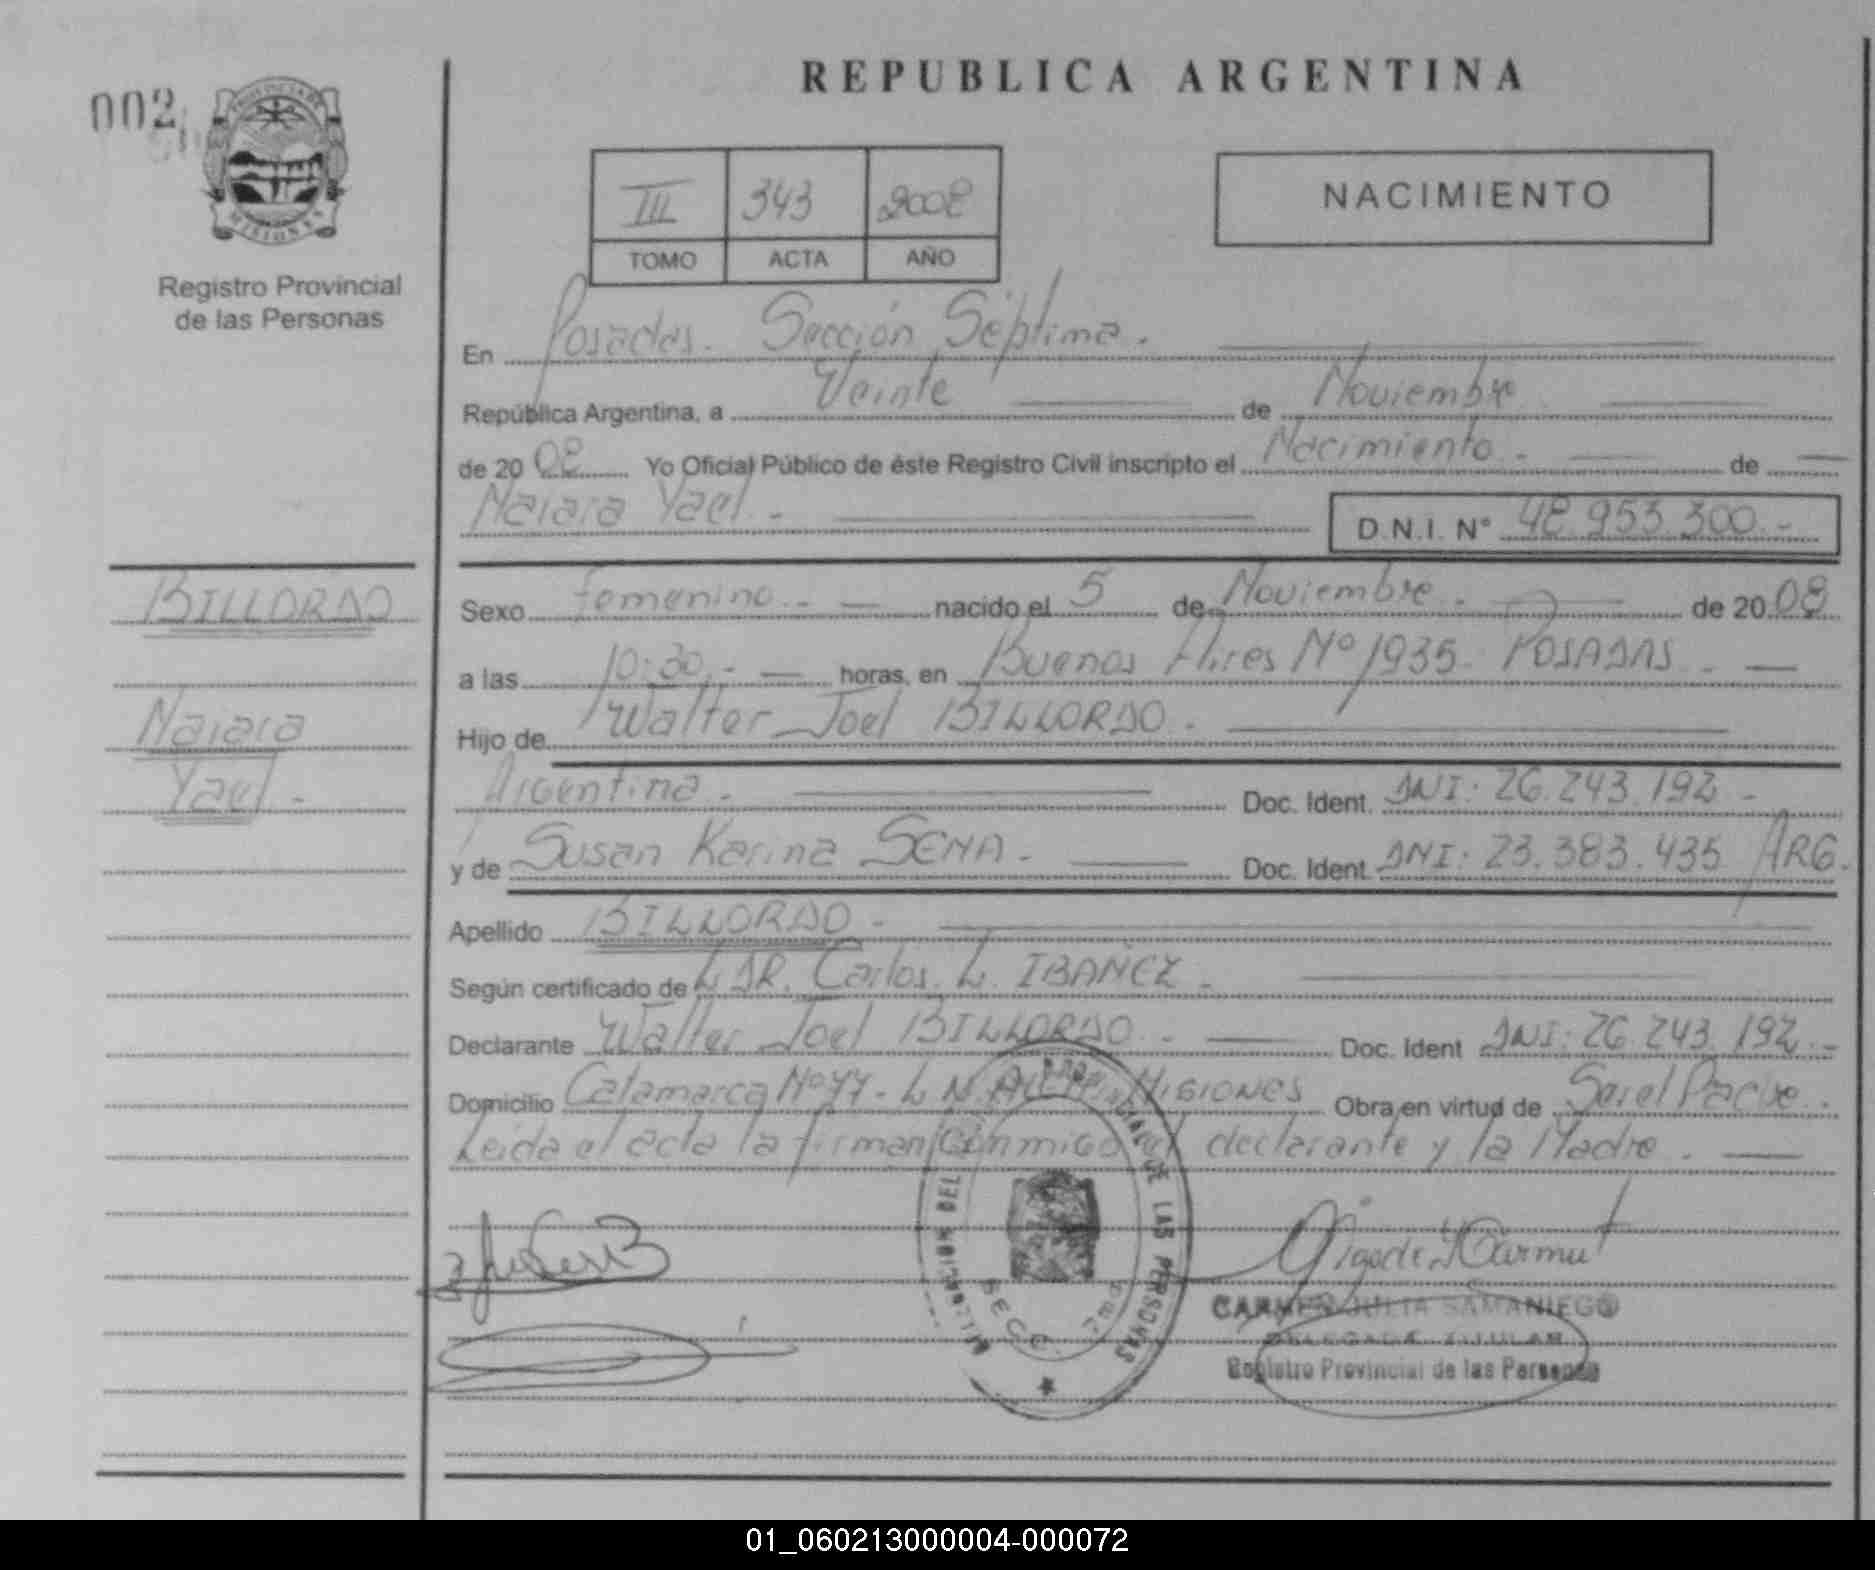 REPUBLICA ARGENTINA
002
PROVINCIA DE
MISIONES
Registro Provincial
de las Personas
III 343 2008
TOMO ACTA AÑO
NACIMIENTO
En Posadas. Sección Séptima.
República Argentina, a Veinte de Noviembre
de 20 08 Yo Oficial Público de éste Registro Civil inscripto el Nacimiento. - de
Naiara Yael. - D.N.I. N° 48.953.300.-
BILLORDO
Naiara
Yael -
Sexo femenino. - nacido el 5 de Noviembre. de 20 08
a las 10:30. - horas, en Buenos Aires Nº 1935. POSADAS. -
Hijo de Walter Joel BILLORDO.
Argentina. Doc. Ident. DNI: 26.243.192 -
y de Susan Karina SENA. Doc. Ident. DNI: 23.383.435 ARG.
Apellido BILLORDO -
Según certificado de L DR. Carlos. L. IBAÑEZ.
Declarante Walter Joel BILLORDO. - Doc. Ident DNI: 26.243.192. -
Domicilio Catamarca Nº 77 - L N. ALEM MISIONES Obra en virtud de Ser el Padre.
Leida el acta la firman conmigo el declarante y la Madre. -
DE LAS PERSONAS
SECC. 7ma
CARMEN JULIA SAMANIEGO
DELEGADA TITULAR
Registro Provincial de las Personas
01_060213000004-000072